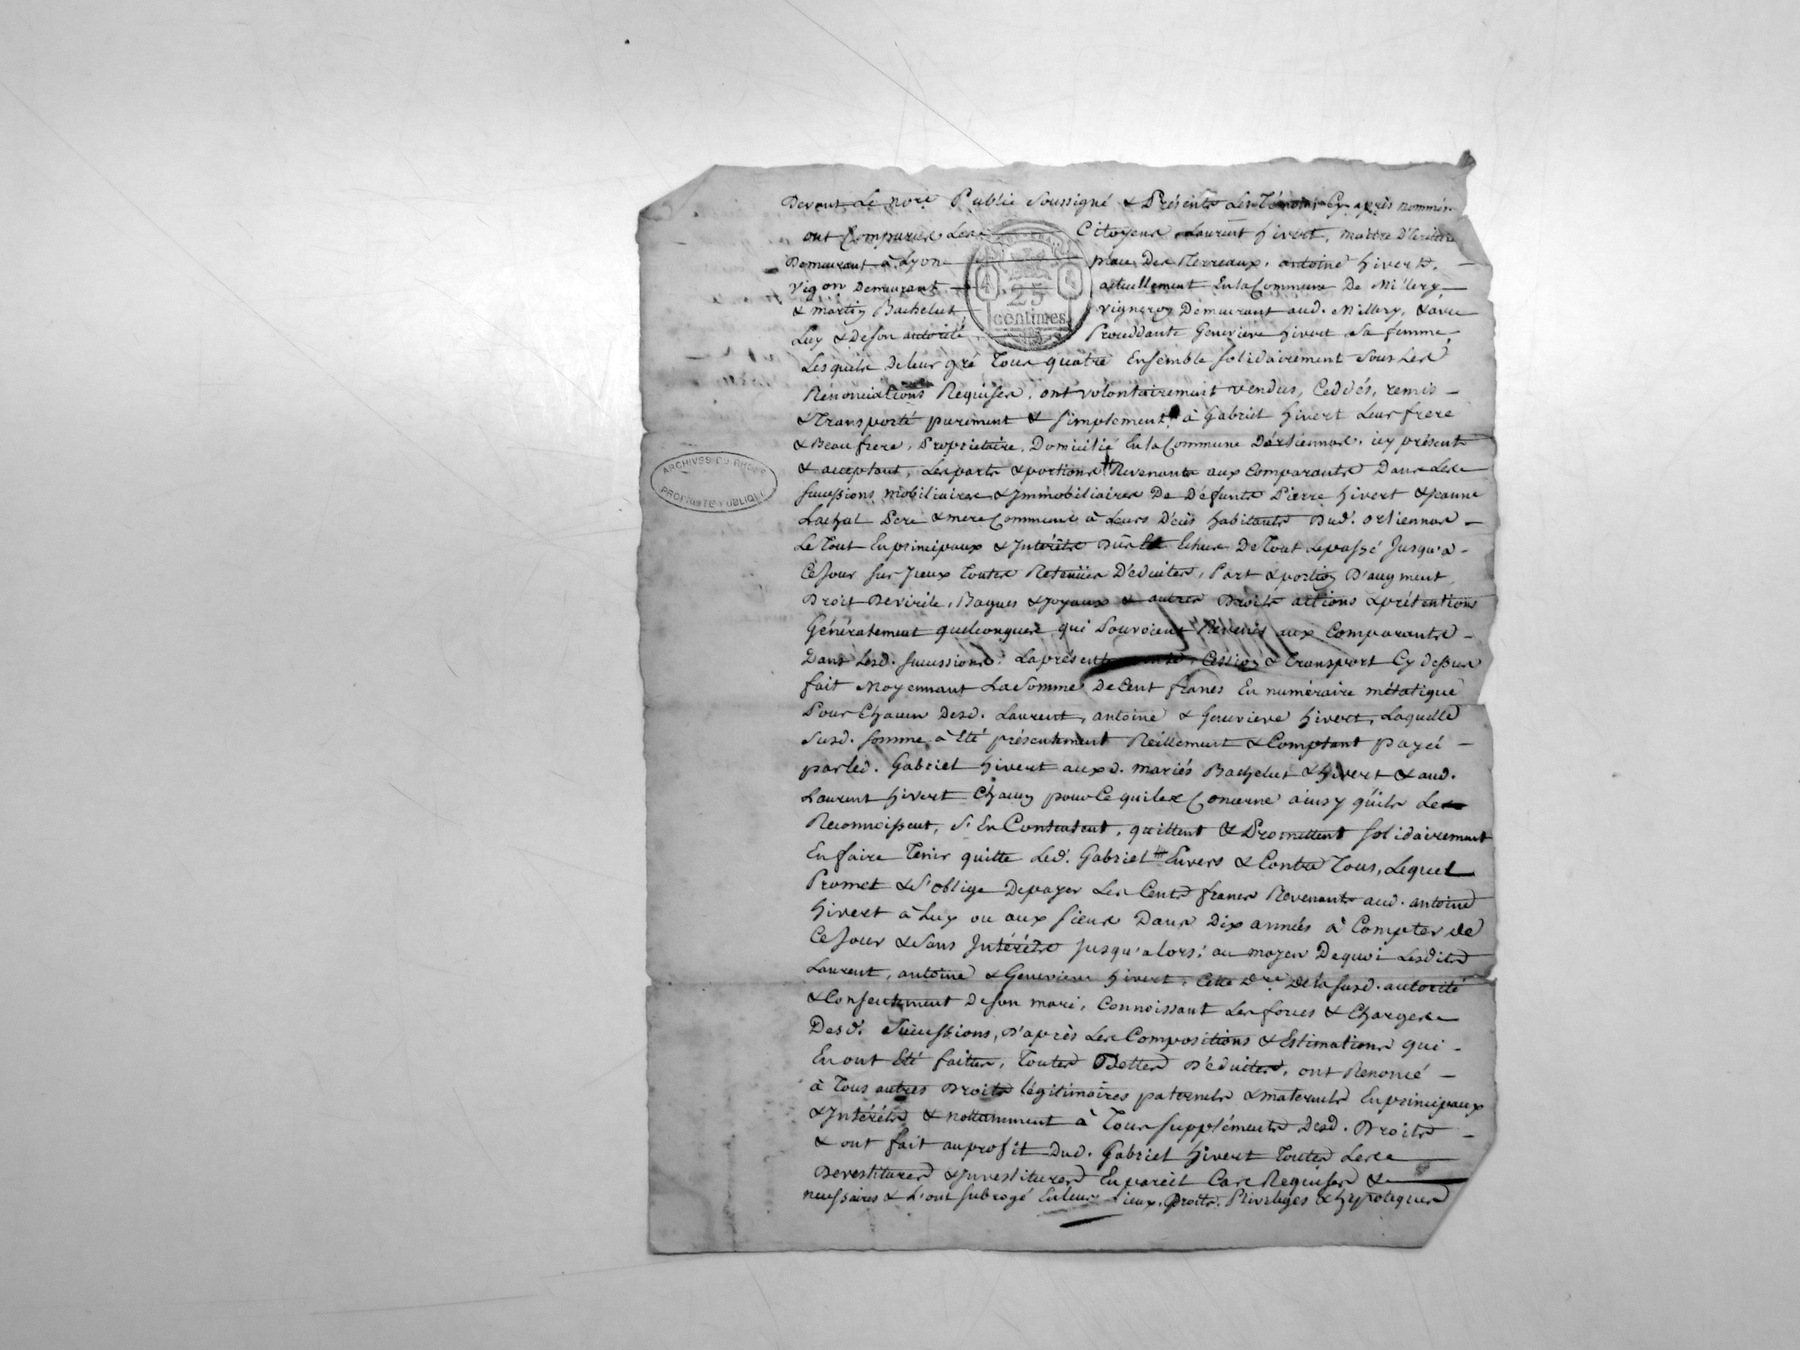 Devant Le nore Public Soussigné & Présents Les Témoins Cy après nommés
ont Comparus Les Citoyens Laurent hivert, maître D'écriture
Demeurant à Lyon place Des Terreaux, antoine hivert,
Vigon Demeurant actuellement En la Commune De Millery
& martin Bachelut vigneron Demeurant aud. Millery, & avec
Luy & De son autorité Procédante Genevieve hivert Sa femme,
Lesquels De leur gré Tous quatre Ensemble solidairement sous Les
Rénonciations Requises, ont volontairement vendus, Ceddés, remis
& Transporté purement & simplement à Gabriel hivert Leur frere
& Beau frere, Proprietaire, Domicilié En la Commune D'orliennas, icy présent
& acceptant, Les parts & portions Revenants aux Comparants Dans Les
successions mobiliaires & Immobiliaires De Défunts Pierre hivert & Jeanne
Lachal Pere & mere Communs à Leurs Décès habitants Dud. orliennas
Le Tout En principaux & Intérêts Echus De Tout Le passé Jusqu'à
Ce Jour sur Iceux Toutes Retenües Déduites, Part & portion D'augment,
Droit De virile, Bagues & Joyaux & autres Droits actions & prétentions
Généralement quelconques qui Pouvoient Revenir aux Comparants
Dans Lesd. successions; La présente Cession & Transport Cy dessus
fait Moyennant La Somme De Cent francs En numéraire métalique
Pour Chacun Desd. Laurent, antoine & Genevieve hivert, Laquelle
Susd. somme à Eté présentement Réellement & Comptant payée
par led. Gabriel hivert aux d. mariés Bachelut & hivert & aud.
Laurent hivert Chacun pour Ce qui les Concerne ainsy qu'ils Le
Reconnoissent, S'En Contentent, quittent & Promettent solidairement
En faire Tenir quitte Led. Gabriel Envers & Contre Tous, Lequel
Promet & S'oblige De payer Les Cents francs Revenants aud. antoine
hivert à Luy ou aux siens Dans Dix années à Compter de
Ce Jour & Sans Intérêts Jusqu'alors; au moyen De quoi Lesdits
Laurent, antoine & Genevieve hivert, Cette Dre De la susd. autorité
& Consentement De son mari, Connoissant Les forces & Charges
Desd. Successions, D'après Les Compositions & Estimations qui
En ont Eté faites, Toutes Dettes Déduites, ont Renoncé
à Tous autres Droits légitimaires paternels & maternels En principaux
& Intérêts & nottamment à Tous suppléments Desd. Droits
& ont fait au profit Dud. Gabriel hivert Toutes Les
Devestitures & Investitures En pareil Cas Requises &
necessaires & L'ont subrogé En leurs Lieux, Droits, Privileges & hypoteques
25
centimes
ARCHIVES DU RHONE
PROPRIETE PUBLIQUE